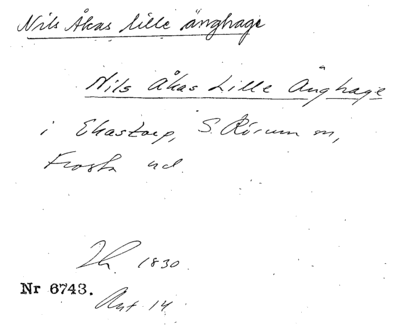 Nils Åkas lille änghage
Nils Åkas Lille Änghage
i Ekastorp, S. Rörum sn,
Frosta hd.
Sk. 1830.
Nr 6743.
Akt 14